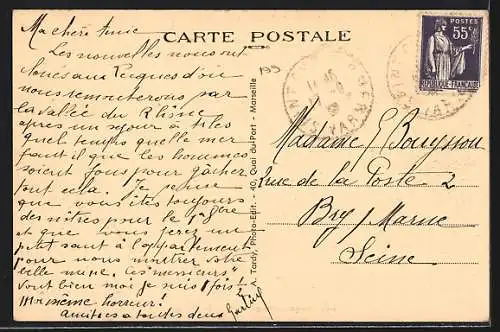 CARTE POSTALE
Ma chère amie
Les nouvelles nous ont
nous remonterons par
la vallée du Rhône
après un séjour à
quel temps quelle mer
faut il que les hommes
soient fous pour gâcher
tout cela. Je pense
que vous êtes toujours
des nôtres pour le 1er
et que vous ferez un
petit saut à l'appartement
pour nous montrer votre
belle mine. Ces "messieurs"
vont bien moi je suis 1 fois 1/2
horreur!
amitiés a toutes deux
A. Tardy, Photo-Edit. - 40, Quai du Port - Marseille
193
POSTES
55c
REPUBLIQUE FRANÇAISE
VAR
Madame Bouysson
2 rue de la Poste 2
Bry/Marne
Seine